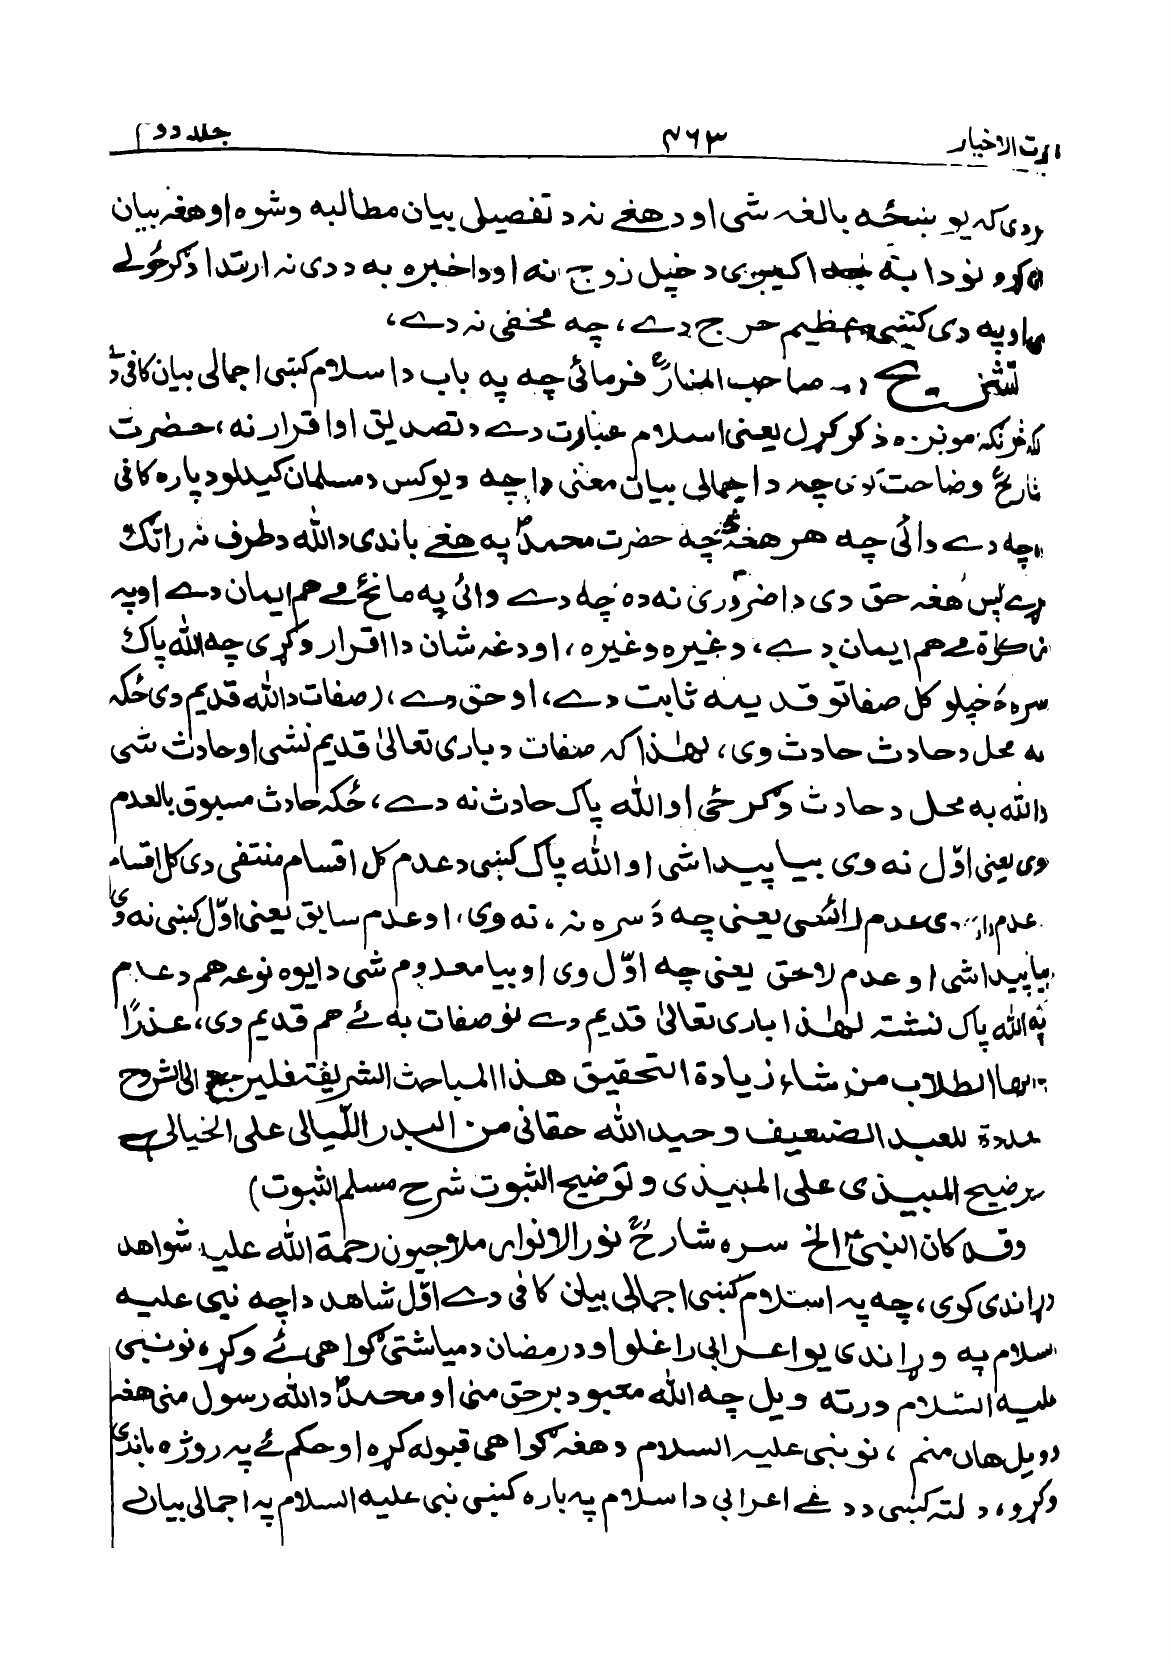 رت الاخیار ۴۶۳ جلد دوم
ردی که یو ښځه بالغه شی او د هغے نه د تفصیلی بیان مطالبه وشوه او هغه بیان
وکړو نو دا به جدا کیږی د خپل زوج نه او دا خبره به د دی نه ارتداد ګرځولے
او په دی کښی عظیم حرج دے، چه مخفی نه دے،
تشریح :- صاحب المنارؒ فرمائی چه په باب د اسلام کښی اجمالی بیان کافی دے
څرنګه مونږه ذکر کړل یعنی اسلام عبارت دے د تصدیق او اقرار نه، حضرت
شارحؒ وضاحت کوی چه د اجمالی بیان معنی دا چه د یو کس د مسلمان کیدلو د پاره کافی
چه دے دائی چه هر هغه څه چه حضرت محمدؐ په هغے باندی د الله د طرف نه راتګ
کړے پس هغه حق دی دا ضروری نه ده چه دے وائی په مانځۀ مے هم ایمان دے او په
زکاة مے هم ایمان دے، وغیره وغیره، او دغه شان دا اقرار وکړی چه الله پاک
سره د خپلو کل صفاتو قدیمه ثابت دے، او حق دے، صفات د الله قدیم دی ځکه
چه محل د حادث حادث وی، لهٰذا که صفات د باری تعالیٰ قدیم نشی او حادث شی
د الله به محل د حادث وګرځی او الله پاک حادث نه دے، ځکه حادث مسبوق بالعدم
وی یعنی اوّل نه وی بیا پیدا شی او الله پاک کښی د عدم کل اقسام منتفی دی کل اقسام
عدم دا دی عدم رائسی یعنی چه د سره نه، نه وی، او عدم سابق یعنی اوّل کښی نه وی
بیا پیدا شی او عدم لاحق یعنی چه اوّل وی او بیا معدوم شی دا یوه نوعه هم د عدم
په الله پاک نشته لهٰذا باری تعالیٰ قدیم دے نو صفات به ئے هم قدیم دی، عذرًا
ایها الطلاب من شاء زیادة التحقیق هذا المباحث الشریفة فلیرجع الی الشروح
للعبد الضعیف وحید الله حقانی من البدر اللّیالی علی الخیالی
توضیح المیبذی علی المیبذی و توضیح الثبوت شرح مسلم الثبوت)
وقد کان النبیؐ الخ سره شارحؒ نور الانوار ملاجیون رحمة الله علیه شواهد
وړاندی کوی، چه په اسلام کښی اجمالی بیان کافی دے اوّل شاهد دا چه نبی علیه
السلام په وړاندی یو اعرابی راغلو او د رمضان د میاشتی ګواهی ئے وکړه نو نبی
علیه السّلام ورته ویل چه الله معبود برحق منی او محمدؐ د الله رسول منی هغه
وویل هان منم، نو نبی علیه السلام د هغه ګواهی قبوله کړه او حکم ئے په روژه باندی
وکړو، دلته کښی د دغے اعرابی د اسلام په باره کښی نبی علیه السلام په اجمالی بیان ئے